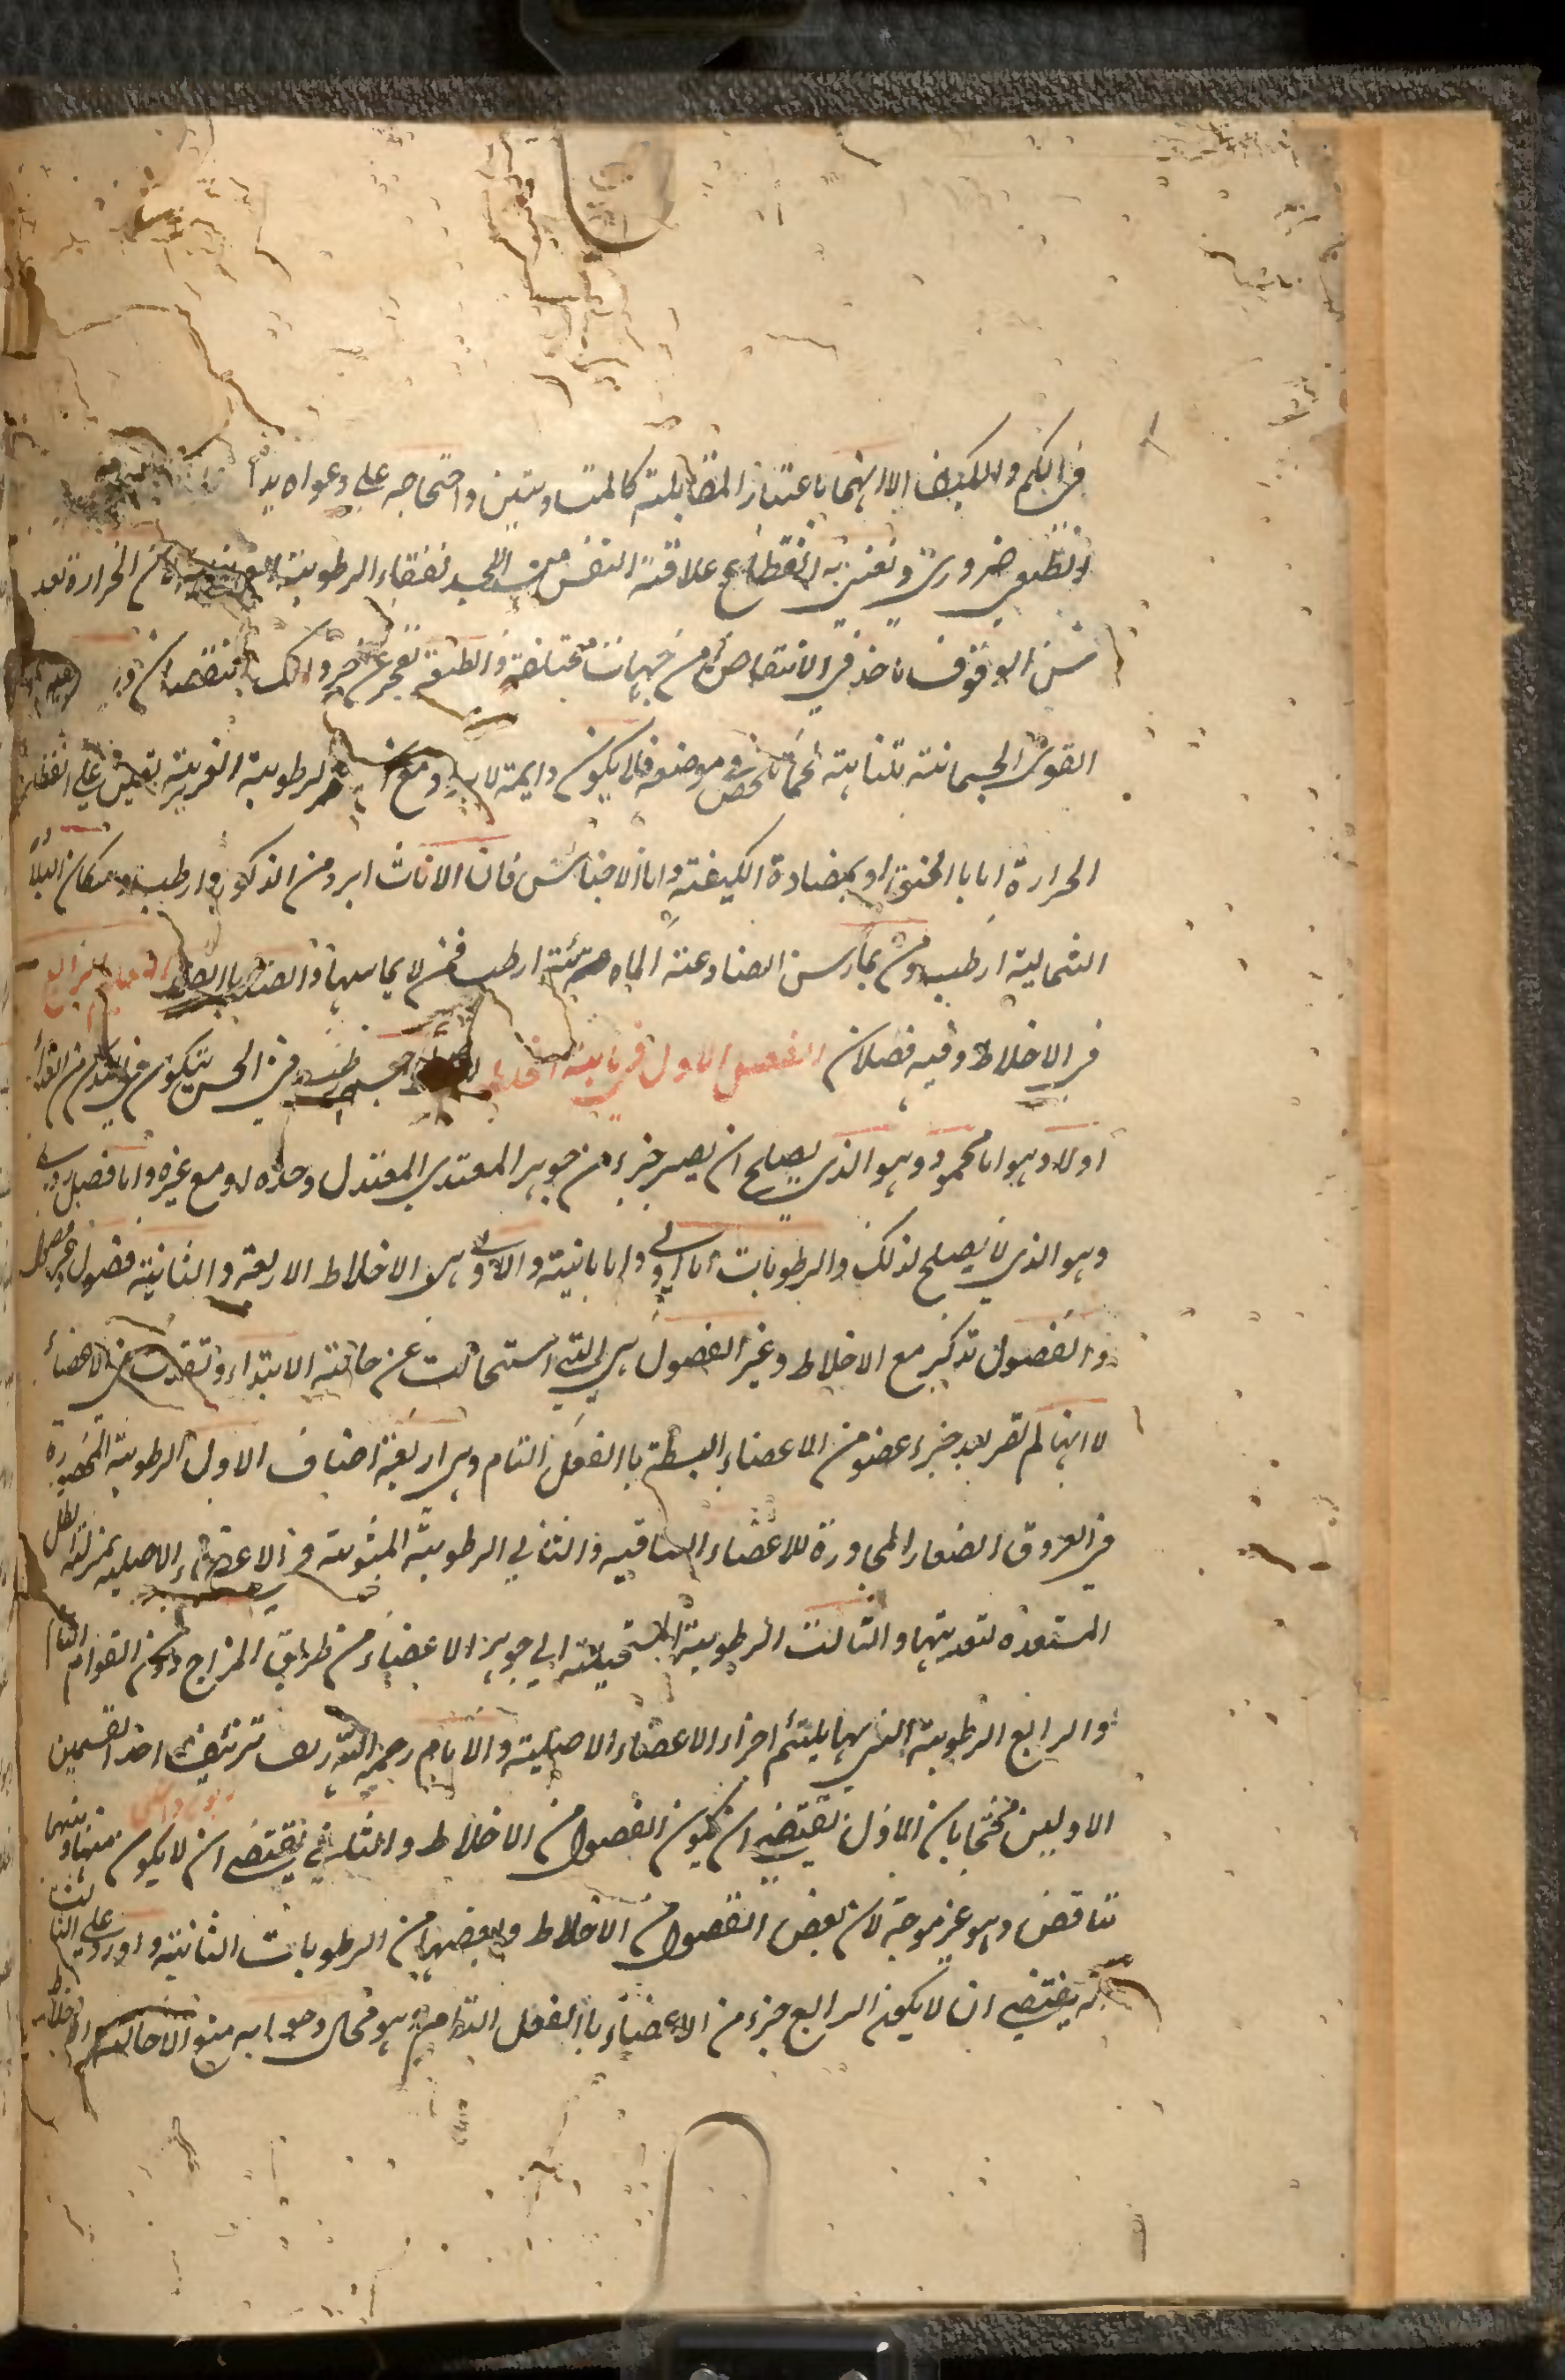 في الكم والكيف الا انهما باعتبار المقابلة كالمتساويتين واحتجاجه على دعواه بدا
الطبيعي ضروري ونعني به انقطاع علاقة النفس من الجسد لفناء الرطوبة الغريزية لان الحرارة بعد
سن الوقوف تاخذ في الانتقاص من جهات مختلفة والطبيعة تعجز عن جبر ذلك النقصان
القوى الجسمانية متناهية كما تلخص في موضعه فلا يكون دايمة ومع الرطوبة الغريبة تعين على انطفاء
الحرارة اما بالخنق او بمضادة الكيفية واما الاجناس فان الاناث ابرد من الذكور وارطب وسكان البلاد
الشمالية ارطب ومن يمارس الصناعة المائية ارطب ممن لا يمارسها والضد بالضد التعليم الرابع
في الاخلاط وفيه فصلان الفصل الاول في ماهية الخلط الخلط جسم رطب في الحس يتكون من الغذاء
اولا وهو اما محمود وهو الذي يصلح ان يصير جزء من جوهر المغتذي المعتدل وحده او مع غيره واما فضل ردي
وهو الذي لا يصلح لذلك والرطوبات اما اولى واما ثانية والاولى هي الاخلاط الاربعة والثانية فضول وغير فضول
والفضول تذكر مع الاخلاط وغير الفضول هي التي استحالت عن حالة الابتداء ونفذت في الاعضاء
لا انها لم تصر بعد جزء عضو من الاعضاء البسيطة بالفعل التام وهي اربعة اصناف الاول الرطوبة المحصورة
في العروق الصغار المجاورة للاعضاء الساقية والثاني الرطوبة المبثوثة في الاعضاء الاصلية بمنزلة الطل
المستعدة لتغذيتها والثالث الرطوبة المستحيلة الى جوهر الاعضاء من طريق المزاج دون القوام التام
والرابع الرطوبة التي بها يلتئم اجزاء الاعضاء الاصلية والامام رحمه الله زيف تزييف اخذ القسمين
الاوليين محتجا بان الاول يقتضي ان يكون الفضول من الاخلاط والثاني يقتضي ان لا يكون منها وبينهما
تناقض وهو غير موجه لان بعض الفضول من الاخلاط وبعضها من الرطوبات الثانية واورد على الثالث
انه يقتضي ان لا يكون الرابع جزء من الاعضاء بالفعل التام وهو محال وجوابه منع الاحالة